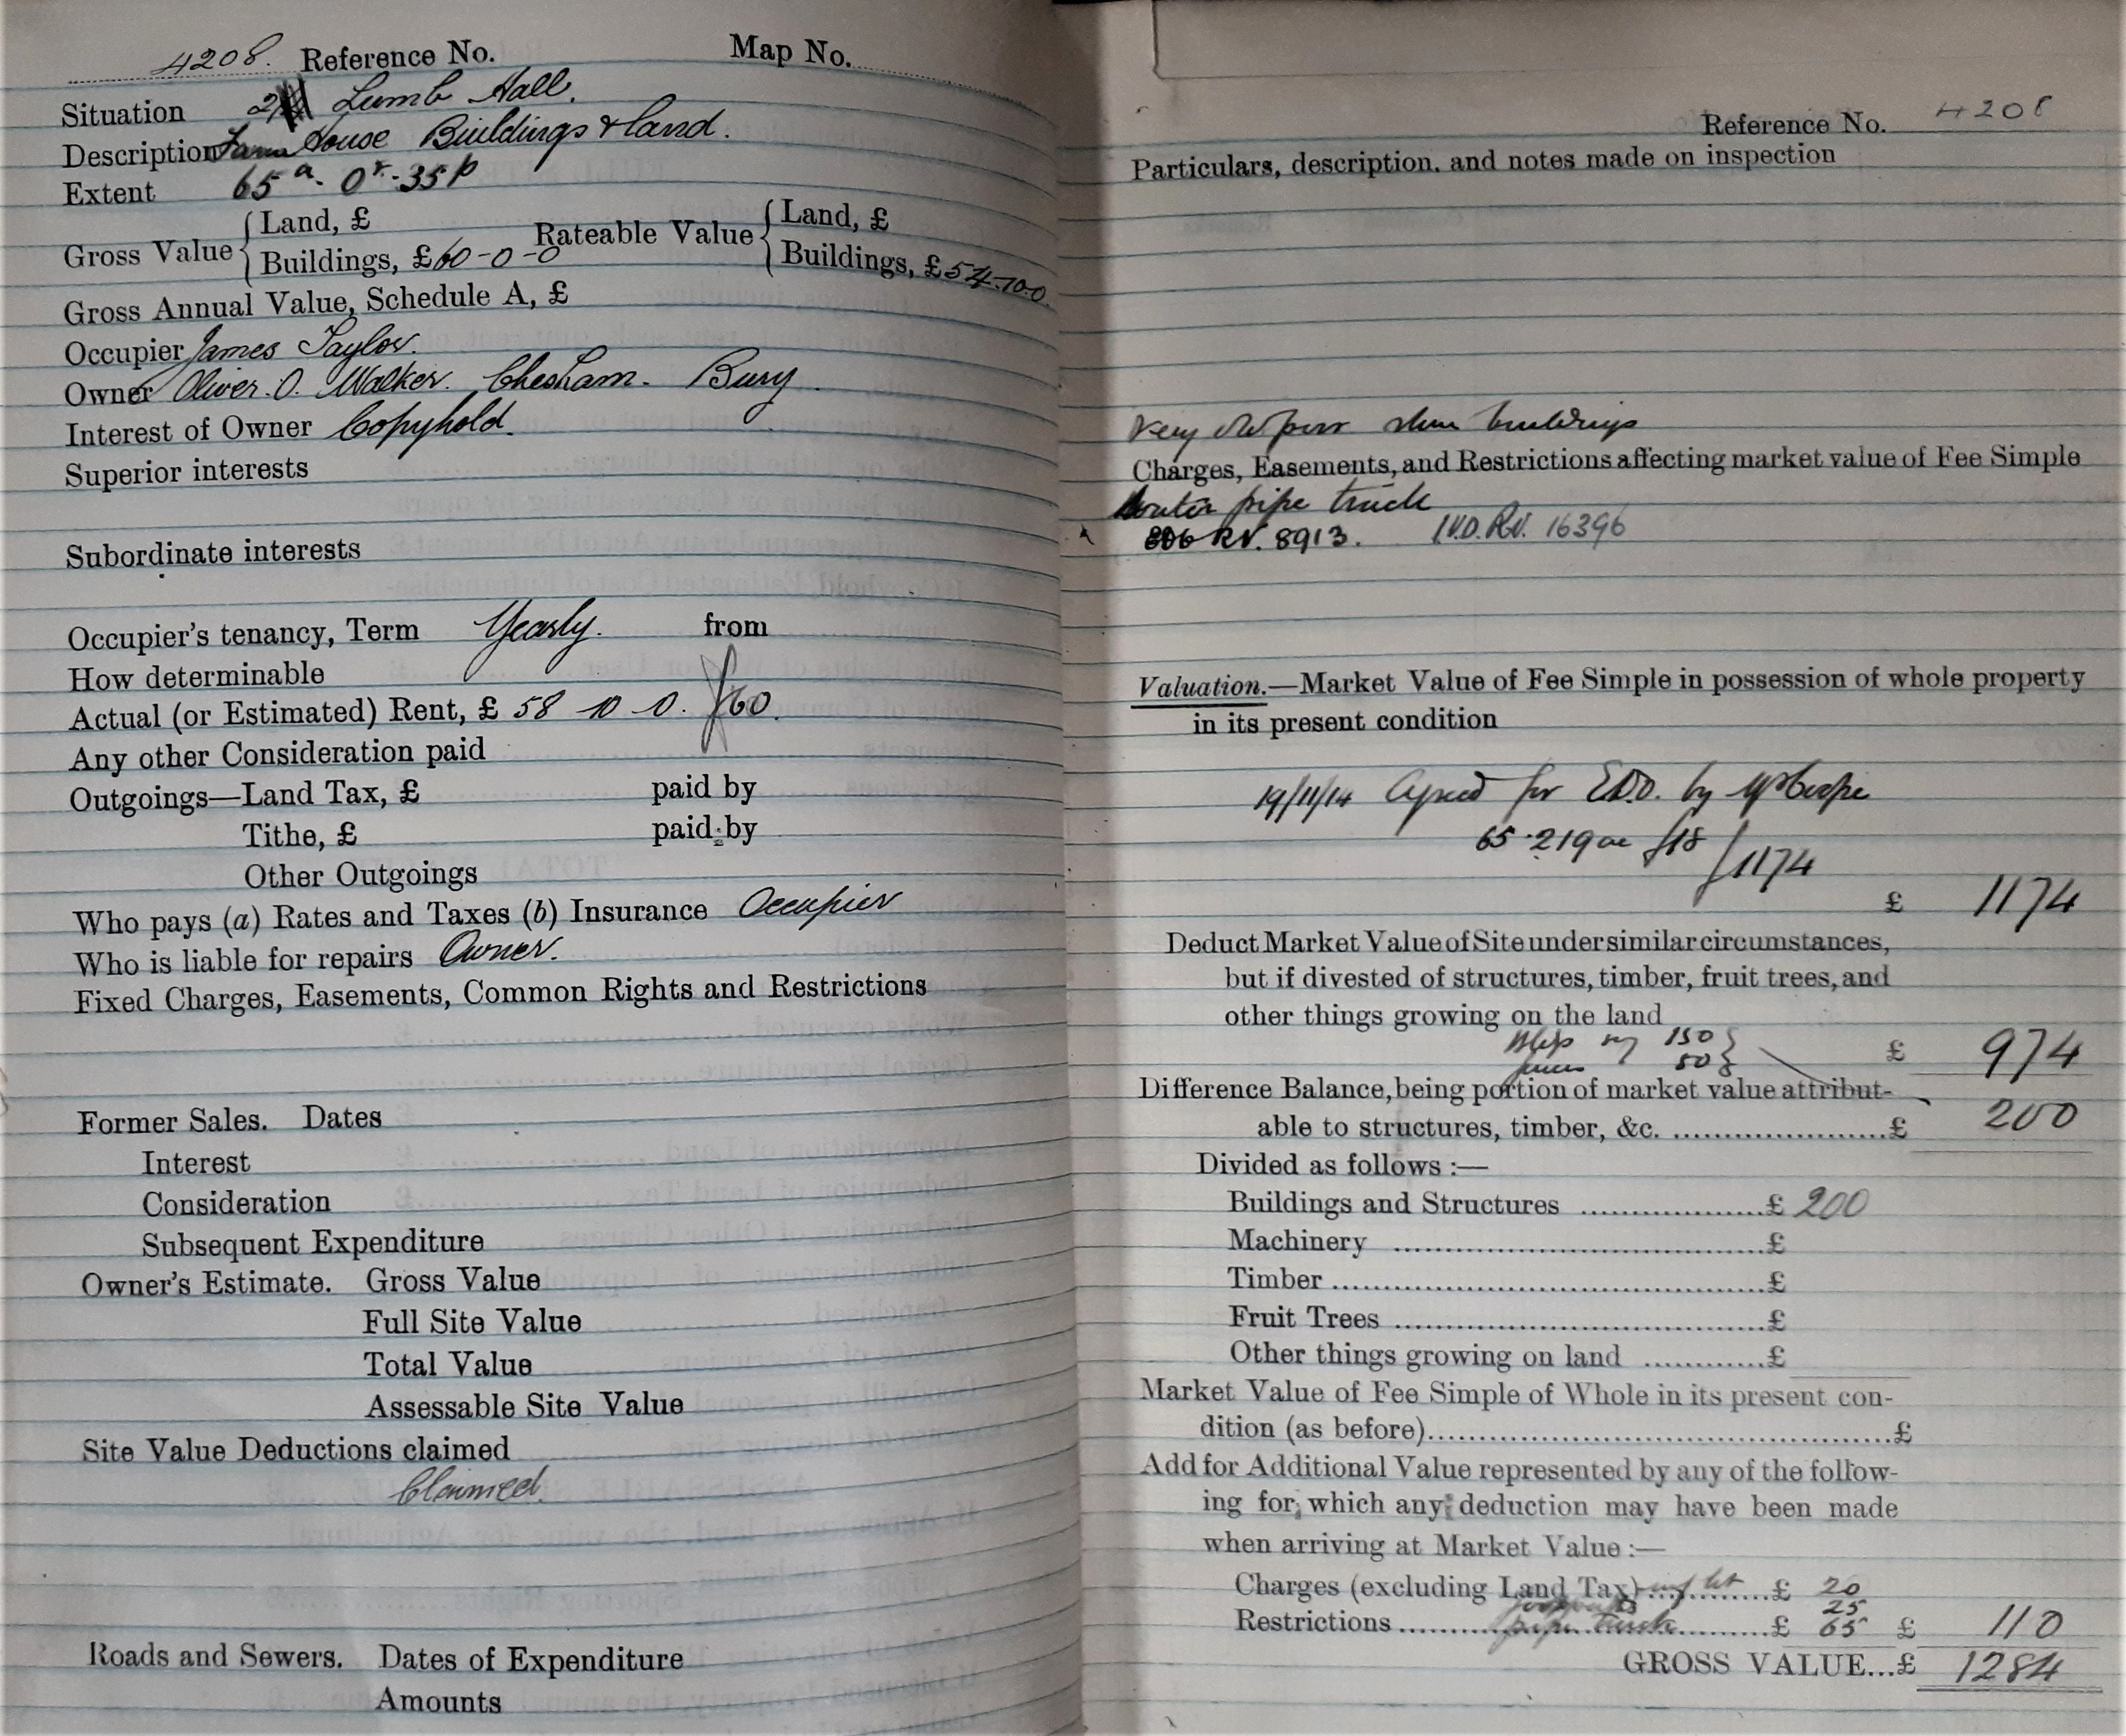 4208. Reference No. Map No.
Situation 2 Lumb Hall.
Description Farm House Buildings & land.
Extent 65a. 0r. 35p
Gross Value { Land, £ Rateable Value { Land, £
Buildings, £60-0-0 Buildings, £54-10-0
Gross Annual Value, Schedule A, £
Occupier James Taylor.
Owner Oliver. O. Walker. Chesham. Bury.
Interest of Owner Copyhold.
Superior interests
Subordinate interests
Occupier's tenancy, Term Yearly. from
How determinable
Actual (or Estimated) Rent, £ 58 10 0. £60.
Any other Consideration paid
Outgoings—Land Tax, £ paid by
Tithe, £ paid by
Other Outgoings
Who pays (a) Rates and Taxes (b) Insurance Occupier
Who is liable for repairs Owner.
Fixed Charges, Easements, Common Rights and Restrictions
Former Sales. Dates
Interest
Consideration
Subsequent Expenditure
Owner's Estimate. Gross Value
Full Site Value
Total Value
Assessable Site Value
Site Value Deductions claimed
Claimed.
Roads and Sewers. Dates of Expenditure
Amounts
Reference No. 4208
Particulars, description, and notes made on inspection
Very old poor stone buildings
Charges, Easements, and Restrictions affecting market value of Fee Simple
water pipe track
RV. 8913. I.V.D. RV. 16396
Valuation.—Market Value of Fee Simple in possession of whole property
in its present condition
19/11/14 Agreed for E.D.O. by
65.219 ac £18
£1174
£ 1174
Deduct Market Value of Site under similar circumstances,
but if divested of structures, timber, fruit trees, and
other things growing on the land
Bldgs 150 } £ 974
50 }
Difference Balance, being portion of market value attribut-
able to structures, timber, &c. £ 200
Divided as follows :—
Buildings and Structures £ 200
Machinery £
Timber £
Fruit Trees £
Other things growing on land £
Market Value of Fee Simple of Whole in its present con-
dition (as before) £
Add for Additional Value represented by any of the follow-
ing for which any deduction may have been made
when arriving at Market Value :—
Charges (excluding Land Tax) £ 20
footpaths 25
Restrictions pipe track £ 65 £ 110
GROSS VALUE...£ 1284